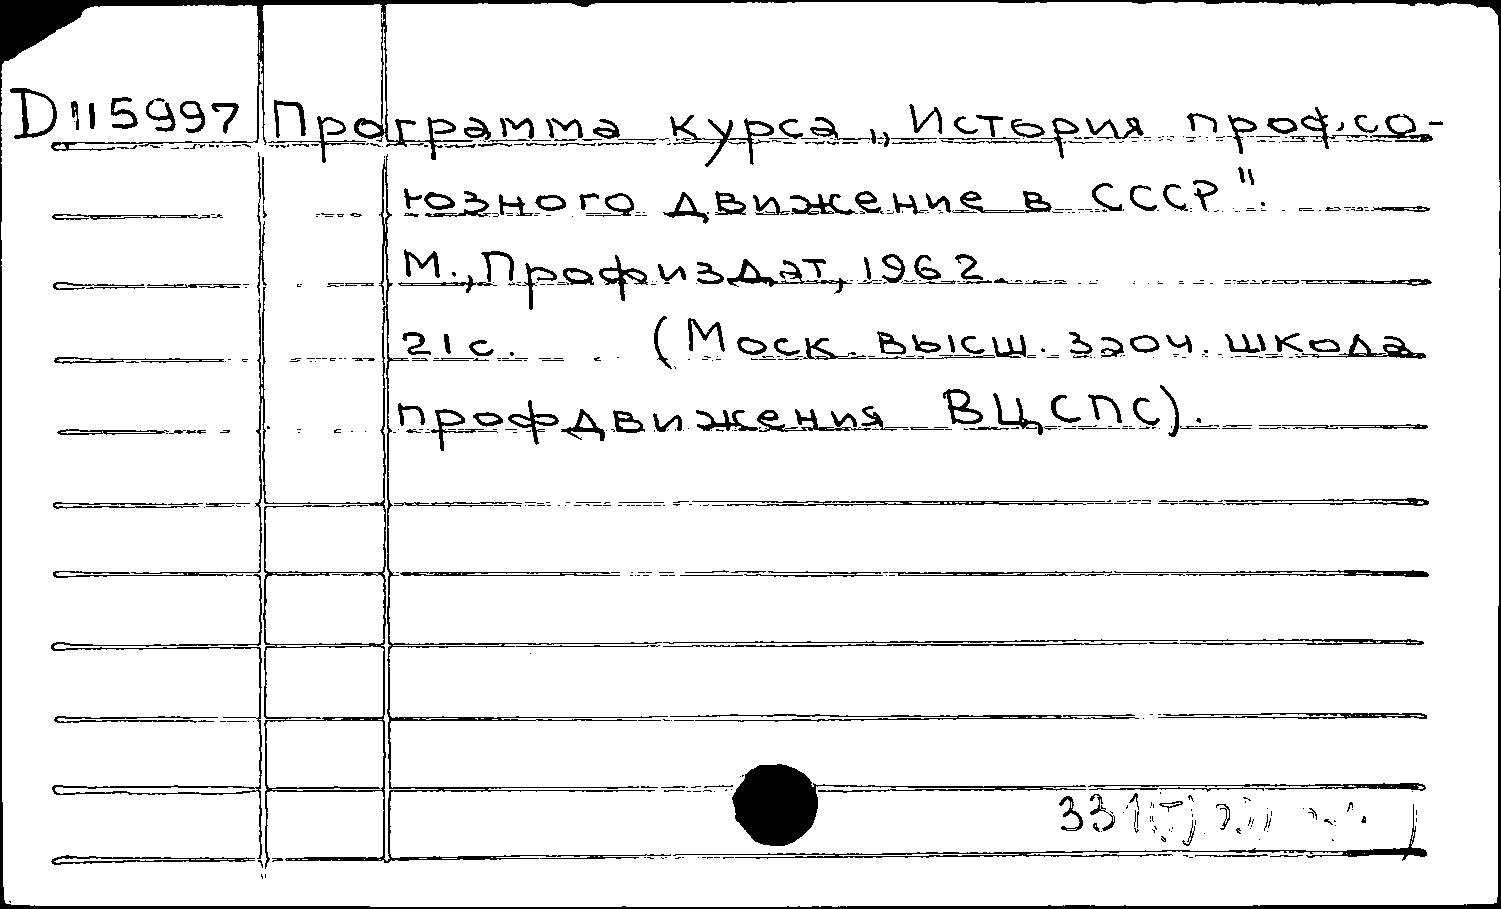 D115997 Программа курса „История профсо-
юзного движение в СССР".
М., Профиздат, 1962.
21 с. (Моск. высш. заоч. школа
профдвижения ВЦСПС).